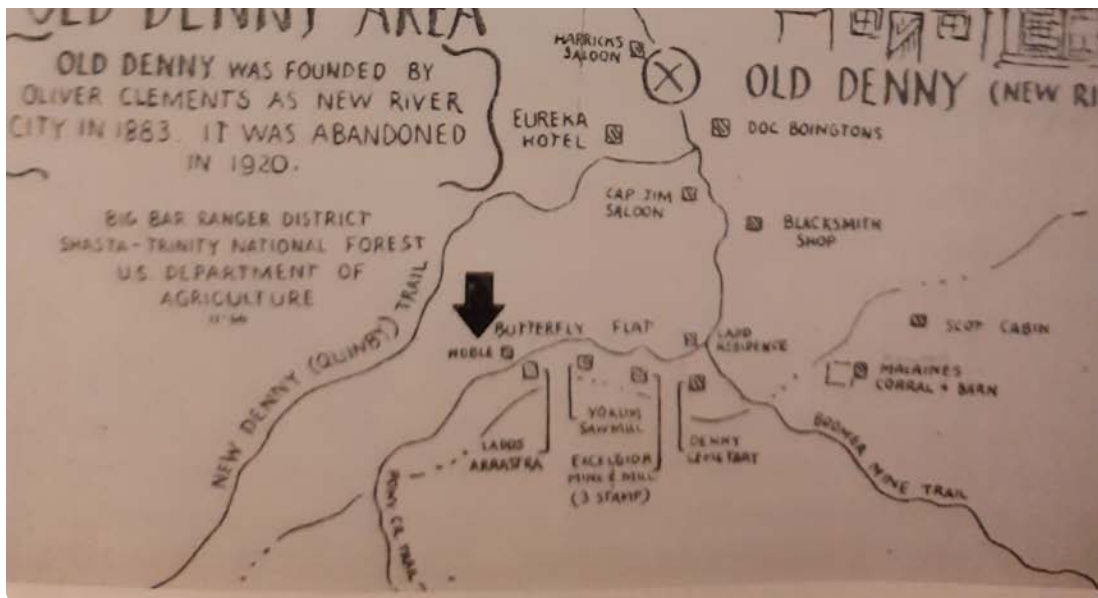 OLD DENNY AREA
OLD DENNY WAS FOUNDED BY
OLIVER CLEMENTS AS NEW RIVER
CITY IN 1883. IT WAS ABANDONED
IN 1920.
BIG BAR RANGER DISTRICT
SHASTA-TRINITY NATIONAL FOREST
U.S. DEPARTMENT OF
AGRICULTURE
HARRICKS
SALOON
X
OLD DENNY (NEW RI
EUREKA
HOTEL
DOC BOINGTONS
CAP JIM
SALOON
BLACKSMITH
SHOP
NEW DENNY (QUINBY) TRAIL
BUTTERFLY FLAT
NOBLE
LADD
RESIDENCE
SCOT CABIN
MALAINES
CORRAL & BARN
LADDS
ARRASTRA
YOKUM
SAWMILL
EXCELSIOR
MINE & MILL
(3 STAMP)
DENNY
CEMETARY
MINE TRAIL
PONY CR TRAIL